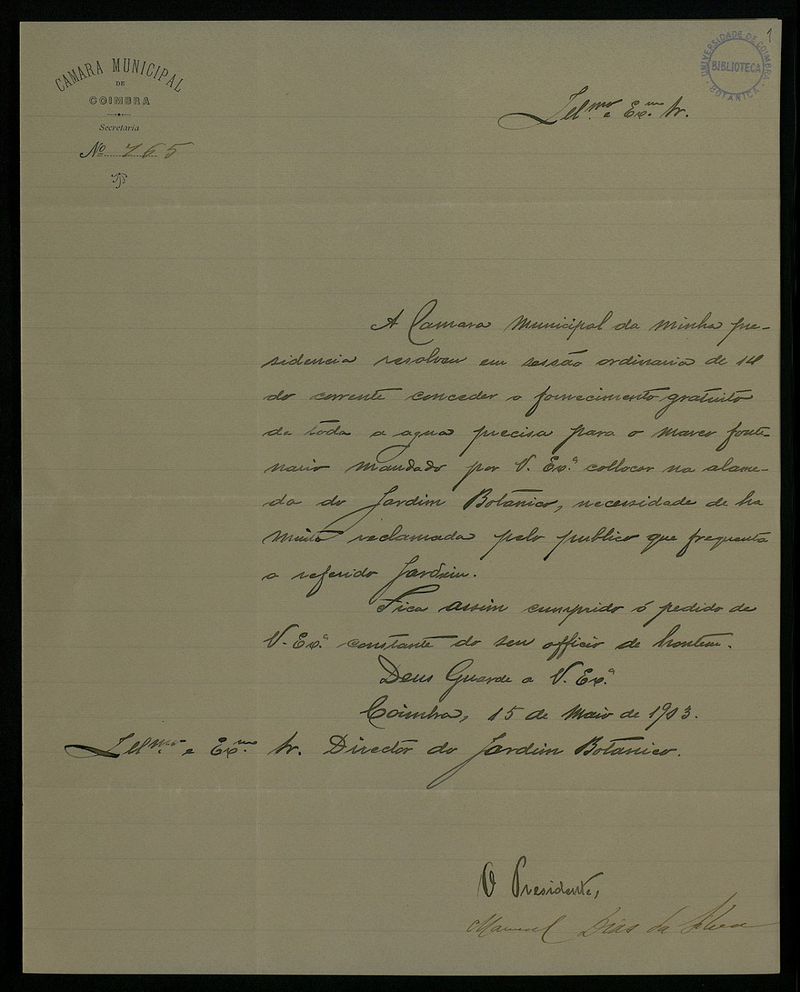 CAMARA MUNICIPAL
DE
COIMBRA
Secretaria
Nº 765
1
UNIVERSIDADE DE COIMBRA
BIBLIOTECA
BOTANICA
Illmo. e Exmo. Sr.
A Camara Municipal da minha pre-
sidencia resolveu em sessão ordinaria de 14
do corrente conceder o fornecimento gratuito
de toda a agua precisa para o marco fonte-
nario mandado por V. Exª. collocar na alame-
da do Jardim Botanico, necessidade de ha
muito reclamada pelo publico que frequenta
o referido Jardim.
Fica assim cumprido o pedido de
V. Exª. constante do seu officio de hontem.
Deus Guarde a V. Exª.
Coimbra, 15 de Maio de 1903.
Illmo. e Exmo. Sr. Director do Jardim Botanico.
O Presidente,
Manuel Dias da Silva